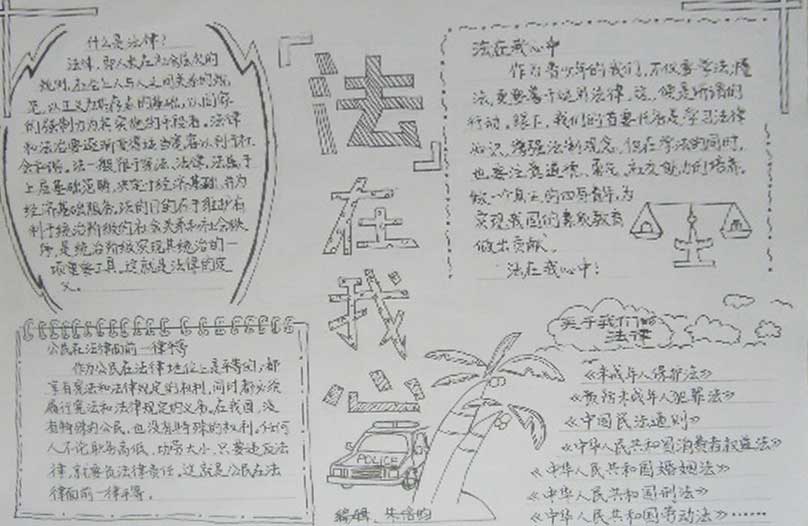 什么是法律?
法律,即人类在社会层次的
规则,社会上人与人之间关系的规
范,以正义为其存在的基础,以国家
的强制力为其实施的手段者。法律
和法治要逐渐变得适当宽容以利于社
会和谐。法一般限于宪法、法律。法属于
上层基础范畴,决定于经济基础,并为
经济基础服务。法的目的在于维护有
利于统治阶级的社会关系和社会秩
序,是统治阶级实现其统治的一
项重要工具。这就是法律的定
义。
公民在法律面前一律平等
作为公民在法律地位上是平等的,都
享有宪法和法律规定的权利,同时都必须
履行宪法和法律规定的义务。在我国,没
有特殊的公民,也没有特殊的权利,任何
人不论职务高低、功劳大小,只要违反法
律,就要负法律责任。这就是公民在法
律面前一律平等。
法
在
我
心
POLICE
编辑:朱
法在我心中
作为青少年的我们,不仅要学法,懂
法,更要善于运用法律。这,便是所谓的
行动。眼下,我们的首要任务是学习法律
知识,增强法制观念。但在学法的同时,
也要注意道德、素
质、社交能力的培养。
做一个真正的四有青年,为
实现我国的素质教育
做出贡献。
法在我心中!
关于我们的
法律
《未成年人保护法》
《预防未成年人犯罪法》
《中国民法通则》
《中华人民共和国消费者权益法》
《中华人民共和国婚姻法》
《中华人民共和国刑法》
《中华人民共和国劳动法》……